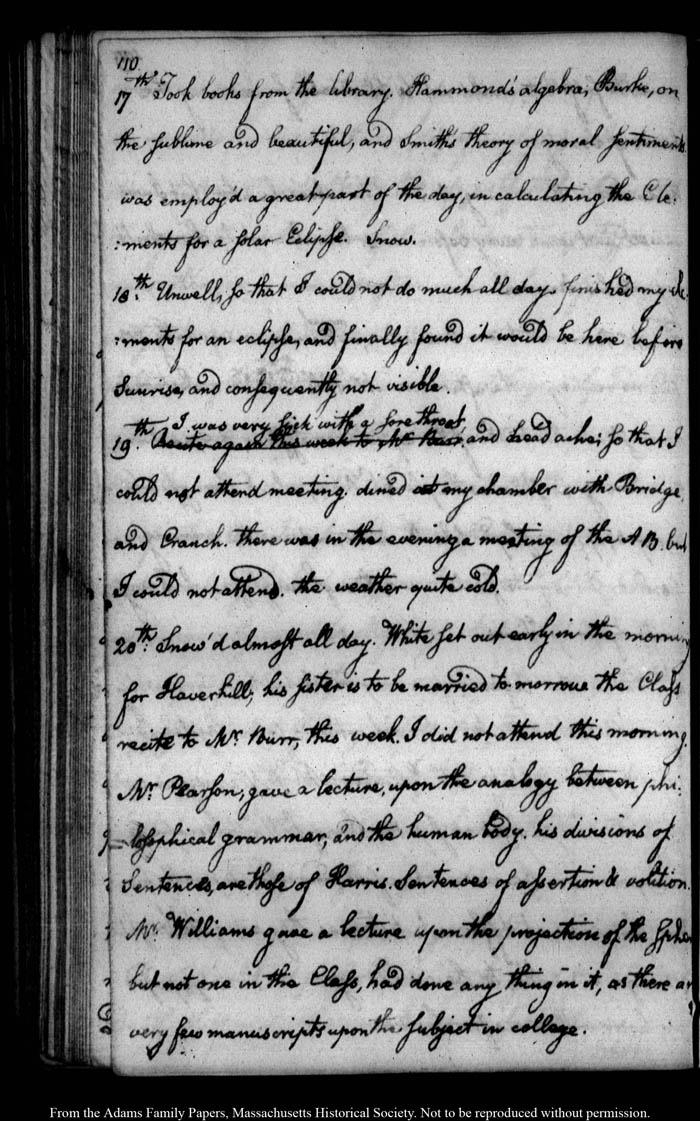 110
17th. Took books from the library. Hammond's algebra, Burke, on
the sublime and beautiful, and Smith's theory of moral sentiments.
was employ'd a great part of the day, in calculating the Ele:
:ments for a solar Eclipse. Snow.
18th. Unwell, so that I could not do much all day. finished my ele:
:ments for an eclipse, and finally found it would be here before
Sunrise, and consequently not visible.
I was very sick with a sore throat,
19th. Recite again this week to Mr. Burr. and head ache; so that I
could not attend meeting. dined at my chamber with Bridge,
and Cranch. there was in the evening a meeting of the A B. but
I could not attend. the weather quite cold.
20th. Snow'd almost all day. White set out early in the morning
for Haverhill; his sister is to be married to morrow the Class
recite to Mr. Burr, this week. I did not attend this morning.
Mr. Pearson, gave a lecture, upon the analogy between phi:
:losophical grammar, and the human body. his divisions of
Sentences, are those of Harris. Sentences of assertion & volition.
Mr. Williams gave a lecture upon the projection of the Sphere
but not one in the Class, had done any thing in it, as there are
very few manuscripts upon the subject in college.
From the Adams Family Papers, Massachusetts Historical Society. Not to be reproduced without permission.